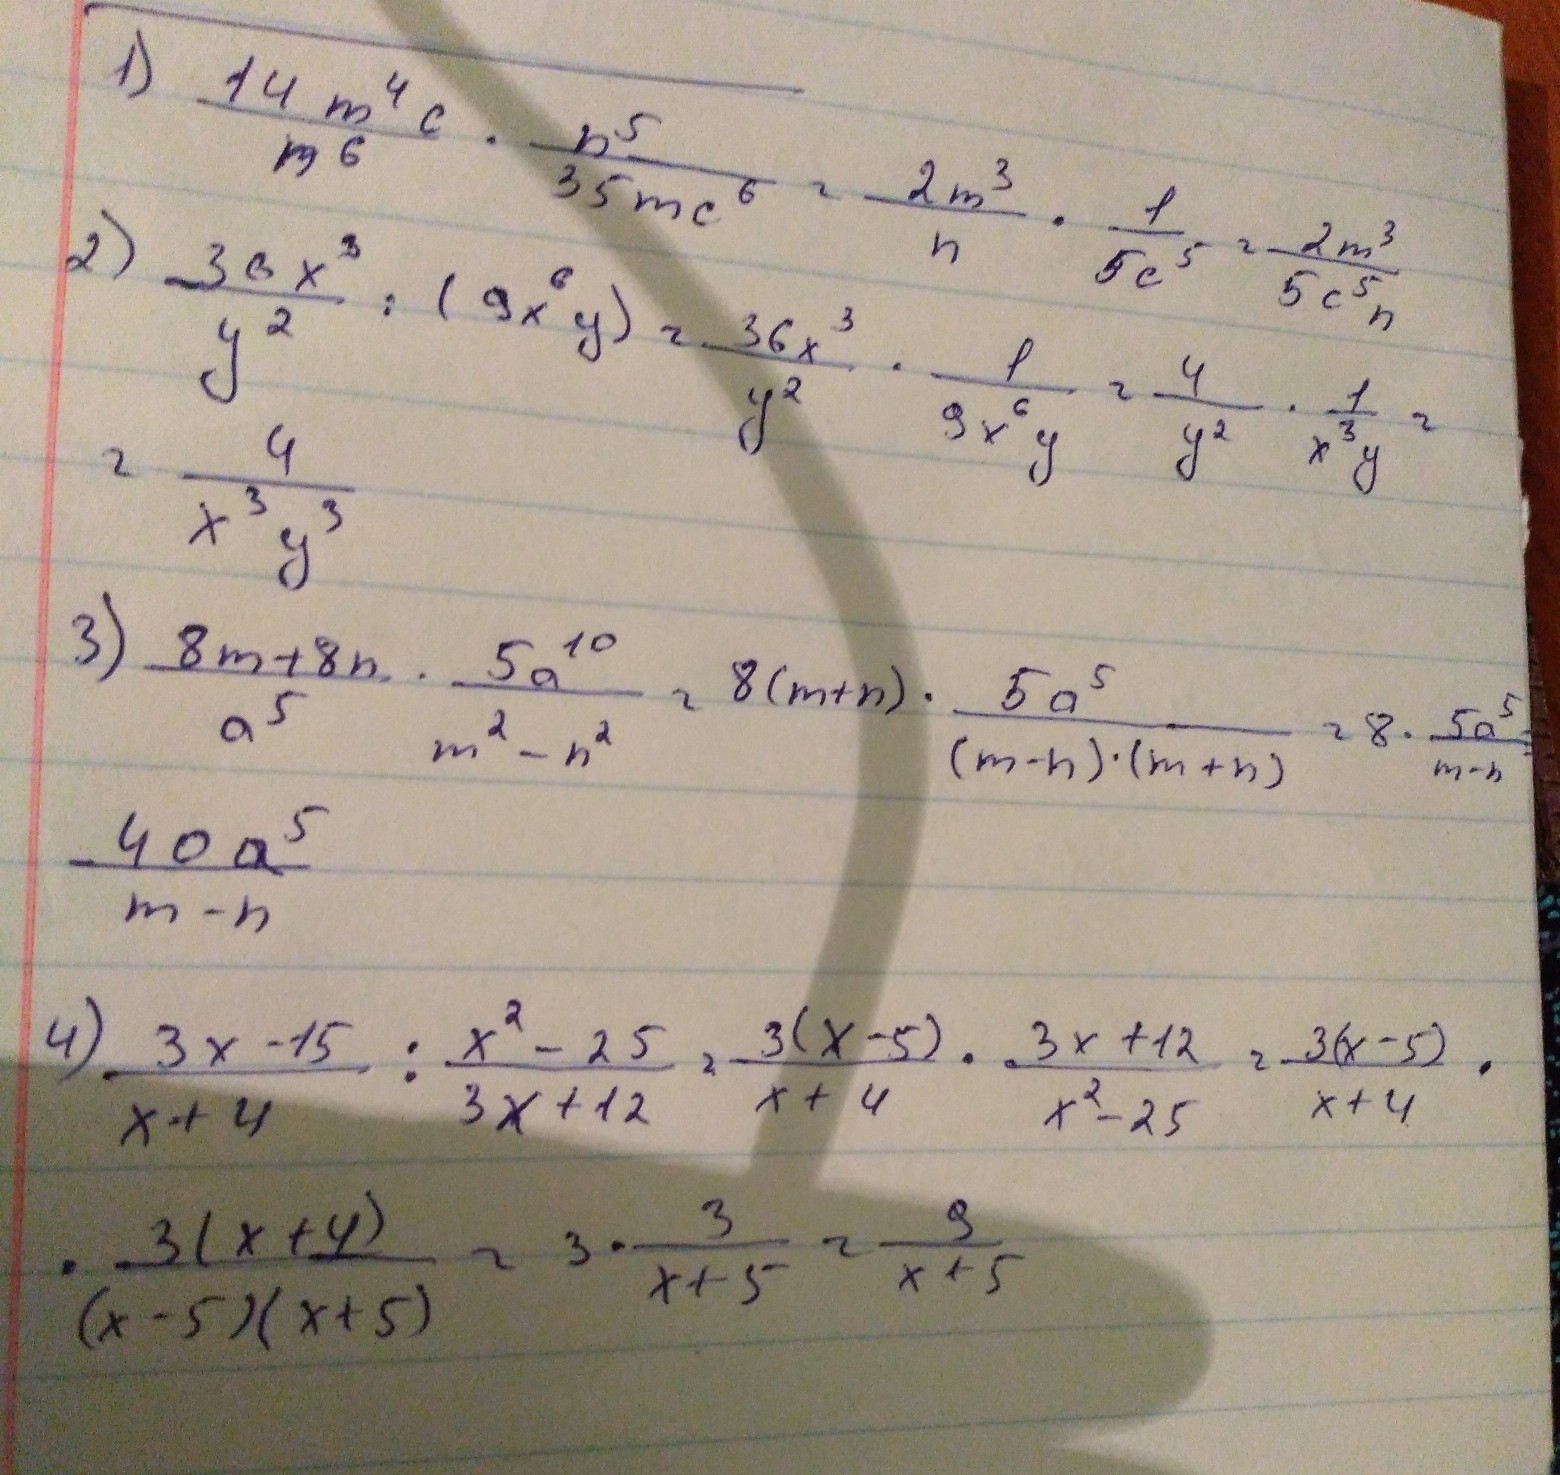 1) 14m⁴c/m⁶ · n⁵/35mc⁶ = 2m³/n · 1/5c⁵ = 2m³/5c⁵n
2) 36x³/y² : (9x⁶y) = 36x³/y² · 1/9x⁶y = 4/y² · 1/x³y =
= 4/x³y³
3) 8m+8n/a⁵ · 5a¹⁰/m²-n² = 8(m+n) · 5a⁵/(m-n)·(m+n) = 8 · 5a⁵/m-n =
40a⁵/m-n
4) 3x-15/x+4 : x²-25/3x+12 = 3(x-5)/x+4 · 3x+12/x²-25 = 3(x-5)/x+4 ·
· 3(x+4)/(x-5)(x+5) = 3 · 3/x+5 = 9/x+5